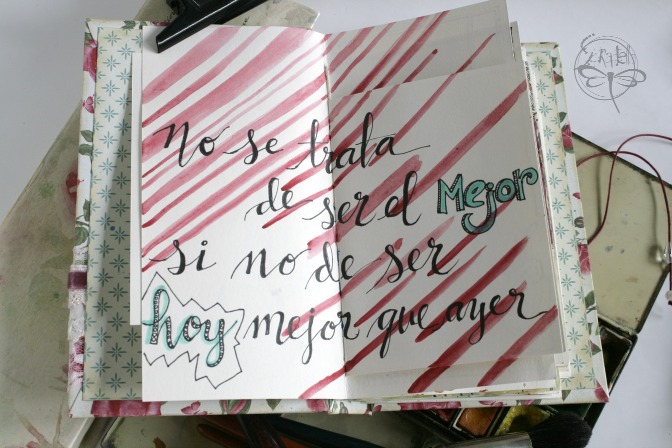 No se trata
de ser el Mejor
si no de ser
hoy mejor que ayer